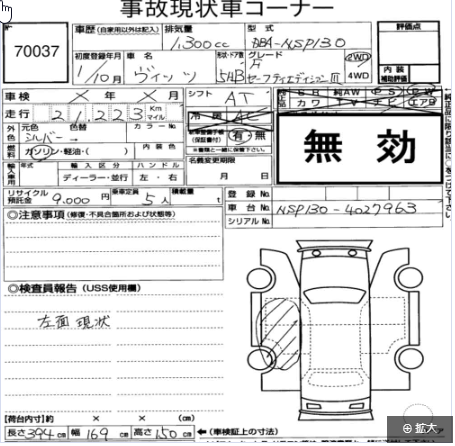 事故現状車コーナー
№ 70037
車歴(自家用以外は記入) 排気量 1,300cc 型式 DBA-NSP130 評価点
初度登録年月 1/10月 車名 ヴィッツ 形状・ドア数 5HB グレード F セーフティエディションⅢ 2WD 4WD
内装補助評価
車検 × 年 × 月 シフト AT
走行 21,223 Km マイル 冷房 AC
外色 元色 シルバー 色替 → カラーNo. 有・無
燃料 ガソリン・軽油・( ) 内装色
無効
輸入車 年式 輸入区分 ディーラー・並行 ハンドル 左・右
名義変更期限 月 日
リサイクル預託金 9.000円 乗車定員 5人 積載量 t
登録No.
車台No. NSP130-4027963
シリアルNo.
◎注意事項(修復・不具合箇所および状態等)
◎検査員報告(USS使用欄)
左面現状
【荷台内寸】約 × × (cm)
長さ394cm 幅169cm 高さ150cm ←(車検証上の寸法)
拡大